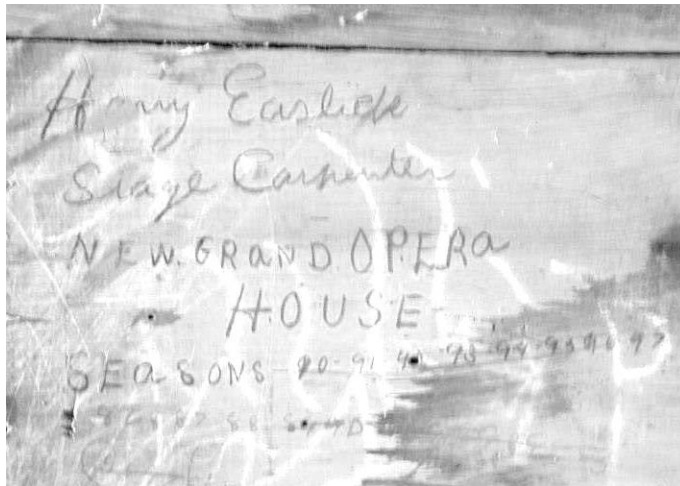 Harry Eastick
Stage Carpenter
NEW.GRAND.OPERA
HOUSE
SEASONS 90-91 92-93-94-95 96 97
86 87 88